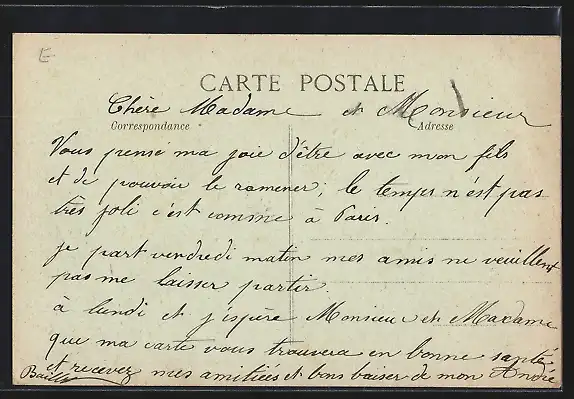 E
CARTE POSTALE
Chère Madame et Monsieur
Correspondance
Adresse
Vous pensé ma joie d'être avec mon fils
et de pouvoir le ramener; le temps n'est pas
très joli c'est comme à Paris.
je part vendredi matin mes amis ne veuillent
pas me laisser partir.
à lundi et j'espère Monsieur et Madame
que ma carte vous trouvera en bonne santé
et recevez mes amitiées et bons baiser de mon André